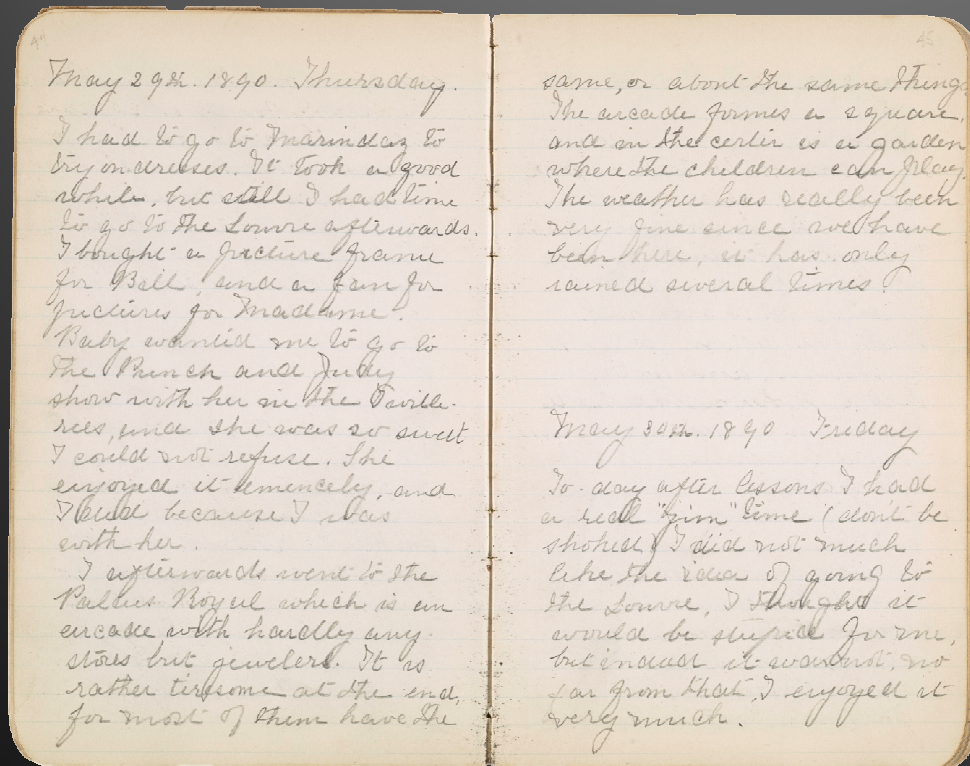 44
May 29th. 1890. Thursday.
I had to go to Marindaz to
try on dresses. It took a good
while, but still I had time
to go to the Louvre afterwards.
I bought a picture frame
for Bell, and a fan for
pictures for Madame.
Baby wanted me to go to
the Punch and Judy
show with her in the Tuille-
ries, and she was so sweet
I could not refuse. She
enjoyed it emencely, and
I did because I was
with her.
I afterwards went to the
Palais Royal which is an
arcade with hardly any
stores but jewelers. It is
rather tiresome at the end,
for most of them have the
45
same, or about the same things
The arcade formes a square,
and in the center is a garden
where the children can play.
The weather has really been
very fine since we have
been here, it has only
rained several times.
May 30th. 1890 Friday
To-day after lessons I had
a real "jim" time (don't be
shoked) I did not much
like the idea of going to
the Louvre, I thought it
would be stupid for me,
but indead it was not, no
far from that, I enjoyed it
very much.